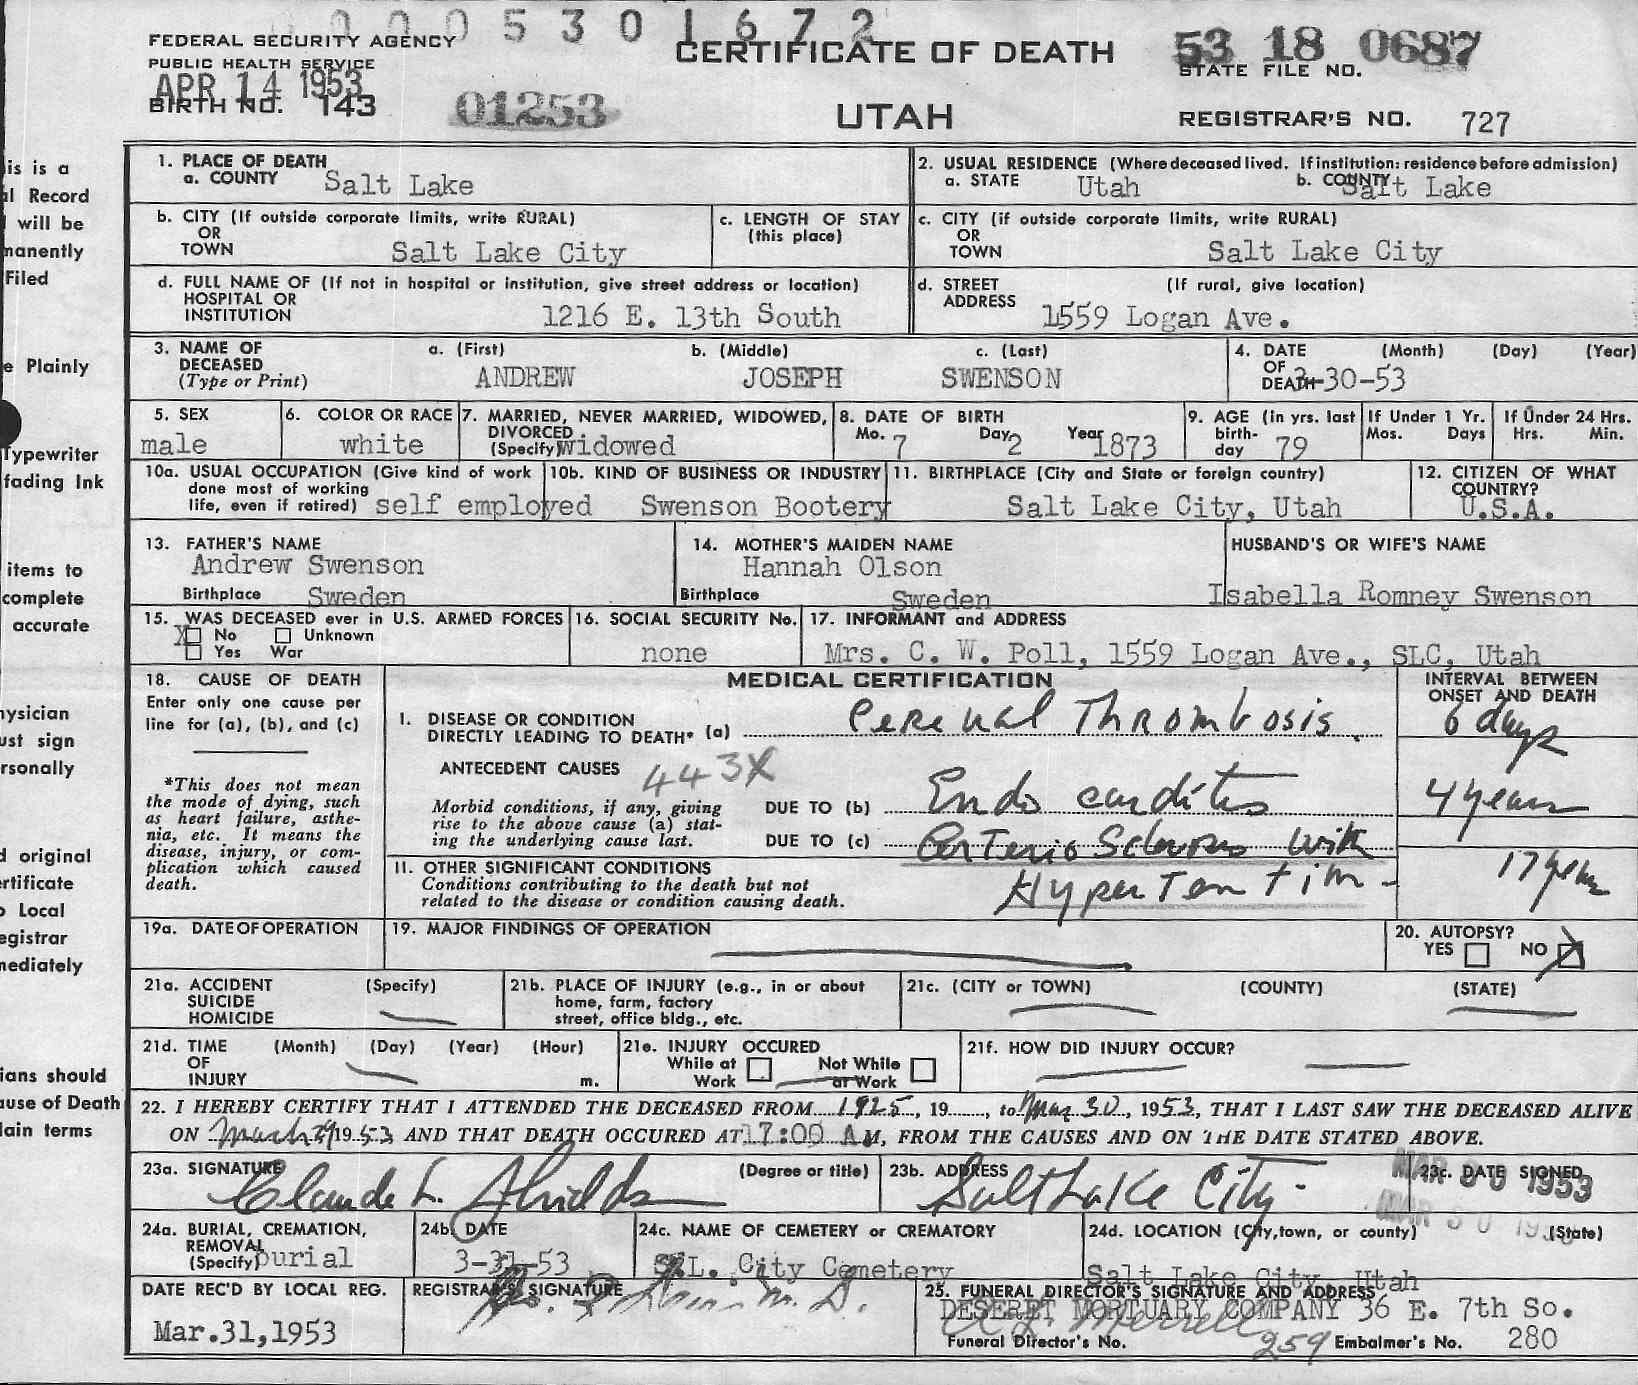 0 0 0 5 3 0 1 6 7 2
FEDERAL SECURITY AGENCY
PUBLIC HEALTH SERVICE
APR 14 1953
BIRTH NO. 143
01253
CERTIFICATE OF DEATH
UTAH
53 18 0687
STATE FILE NO.
REGISTRAR'S NO. 727
is is a
al Record
will be
manently
Filed
e Plainly
Typewriter
fading Ink
items to
complete
accurate
hysician
ust sign
rsonally
d original
ertificate
o Local
egistrar
mediately
ians should
ause of Death
lain terms
1. PLACE OF DEATH
a. COUNTY Salt Lake
2. USUAL RESIDENCE (Where deceased lived. If institution: residence before admission)
a. STATE Utah b. COUNTY Salt Lake
b. CITY (If outside corporate limits, write RURAL)
OR
TOWN Salt Lake City
c. LENGTH OF STAY
(this place)
c. CITY (if outside corporate limits, write RURAL)
OR
TOWN Salt Lake City
d. FULL NAME OF (If not in hospital or institution, give street address or location)
HOSPITAL OR
INSTITUTION 1216 E. 13th South
d. STREET (If rural, give location)
ADDRESS 1559 Logan Ave.
3. NAME OF a. (First) b. (Middle) c. (Last)
DECEASED
(Type or Print) ANDREW JOSEPH SWENSON
4. DATE (Month) (Day) (Year)
OF
DEATH 3-30-53
5. SEX
male
6. COLOR OR RACE
white
7. MARRIED, NEVER MARRIED, WIDOWED,
DIVORCED
(Specify) widowed
8. DATE OF BIRTH
Mo. 7 Day 2 Year 1873
9. AGE (in yrs. last
birth-
day 79
If Under 1 Yr.
Mos. Days
If Under 24 Hrs.
Hrs. Min.
10a. USUAL OCCUPATION (Give kind of work
done most of working
life, even if retired) self employed
10b. KIND OF BUSINESS OR INDUSTRY
Swenson Bootery
11. BIRTHPLACE (City and State or foreign country)
Salt Lake City, Utah
12. CITIZEN OF WHAT
COUNTRY?
U.S.A.
13. FATHER'S NAME
Andrew Swenson
Birthplace Sweden
14. MOTHER'S MAIDEN NAME
Hannah Olson
Birthplace Sweden
HUSBAND'S OR WIFE'S NAME
Isabella Romney Swenson
15. WAS DECEASED ever in U.S. ARMED FORCES
X No Unknown
Yes War
16. SOCIAL SECURITY No.
none
17. INFORMANT and ADDRESS
Mrs. C. W. Poll, 1559 Logan Ave., SLC, Utah
18. CAUSE OF DEATH
Enter only one cause per
line for (a), (b), and (c)
*This does not mean
the mode of dying, such
as heart failure, asthe-
nia, etc. It means the
disease, injury, or com-
plication which caused
death.
MEDICAL CERTIFICATION
INTERVAL BETWEEN
ONSET AND DEATH
I. DISEASE OR CONDITION
DIRECTLY LEADING TO DEATH* (a) Cerebral Thrombosis. 6 days
ANTECEDENT CAUSES 443X
Morbid conditions, if any, giving
rise to the above cause (a) stat-
ing the underlying cause last.
DUE TO (b) Endo carditis 4 years
DUE TO (c) Arterio Sclerosis with
Hypertension - 17 years
II. OTHER SIGNIFICANT CONDITIONS
Conditions contributing to the death but not
related to the disease or condition causing death.
19a. DATE OF OPERATION
19. MAJOR FINDINGS OF OPERATION
20. AUTOPSY?
YES NO X
21a. ACCIDENT (Specify)
SUICIDE
HOMICIDE
21b. PLACE OF INJURY (e.g., in or about
home, farm, factory
street, office bldg., etc.
21c. (CITY or TOWN) (COUNTY) (STATE)
21d. TIME (Month) (Day) (Year) (Hour)
OF
INJURY m.
21e. INJURY OCCURED
While at Not While
Work at Work
21f. HOW DID INJURY OCCUR?
22. I HEREBY CERTIFY THAT I ATTENDED THE DECEASED FROM 1925, 19......, to Mar 30, 1953, THAT I LAST SAW THE DECEASED ALIVE
ON March 29 1953 AND THAT DEATH OCCURED AT 7:00 A M, FROM THE CAUSES AND ON THE DATE STATED ABOVE.
23a. SIGNATURE (Degree or title)
Claude L. Shields
23b. ADDRESS
Salt Lake City.
23c. DATE SIGNED
MAR 30 1953
MAR 30 1953
24a. BURIAL, CREMATION,
REMOVAL
(Specify) burial
24b. DATE
3-31-53
24c. NAME OF CEMETERY or CREMATORY
S.L. City Cemetery
24d. LOCATION (City, town, or county) (State)
Salt Lake City, Utah
DATE REC'D BY LOCAL REG.
Mar.31,1953
REGISTRAR'S SIGNATURE
M. D.
25. FUNERAL DIRECTOR'S SIGNATURE AND ADDRESS
DESERET MORTUARY COMPANY 36 E. 7th So.
Funeral Director's No. 259 Embalmer's No. 280